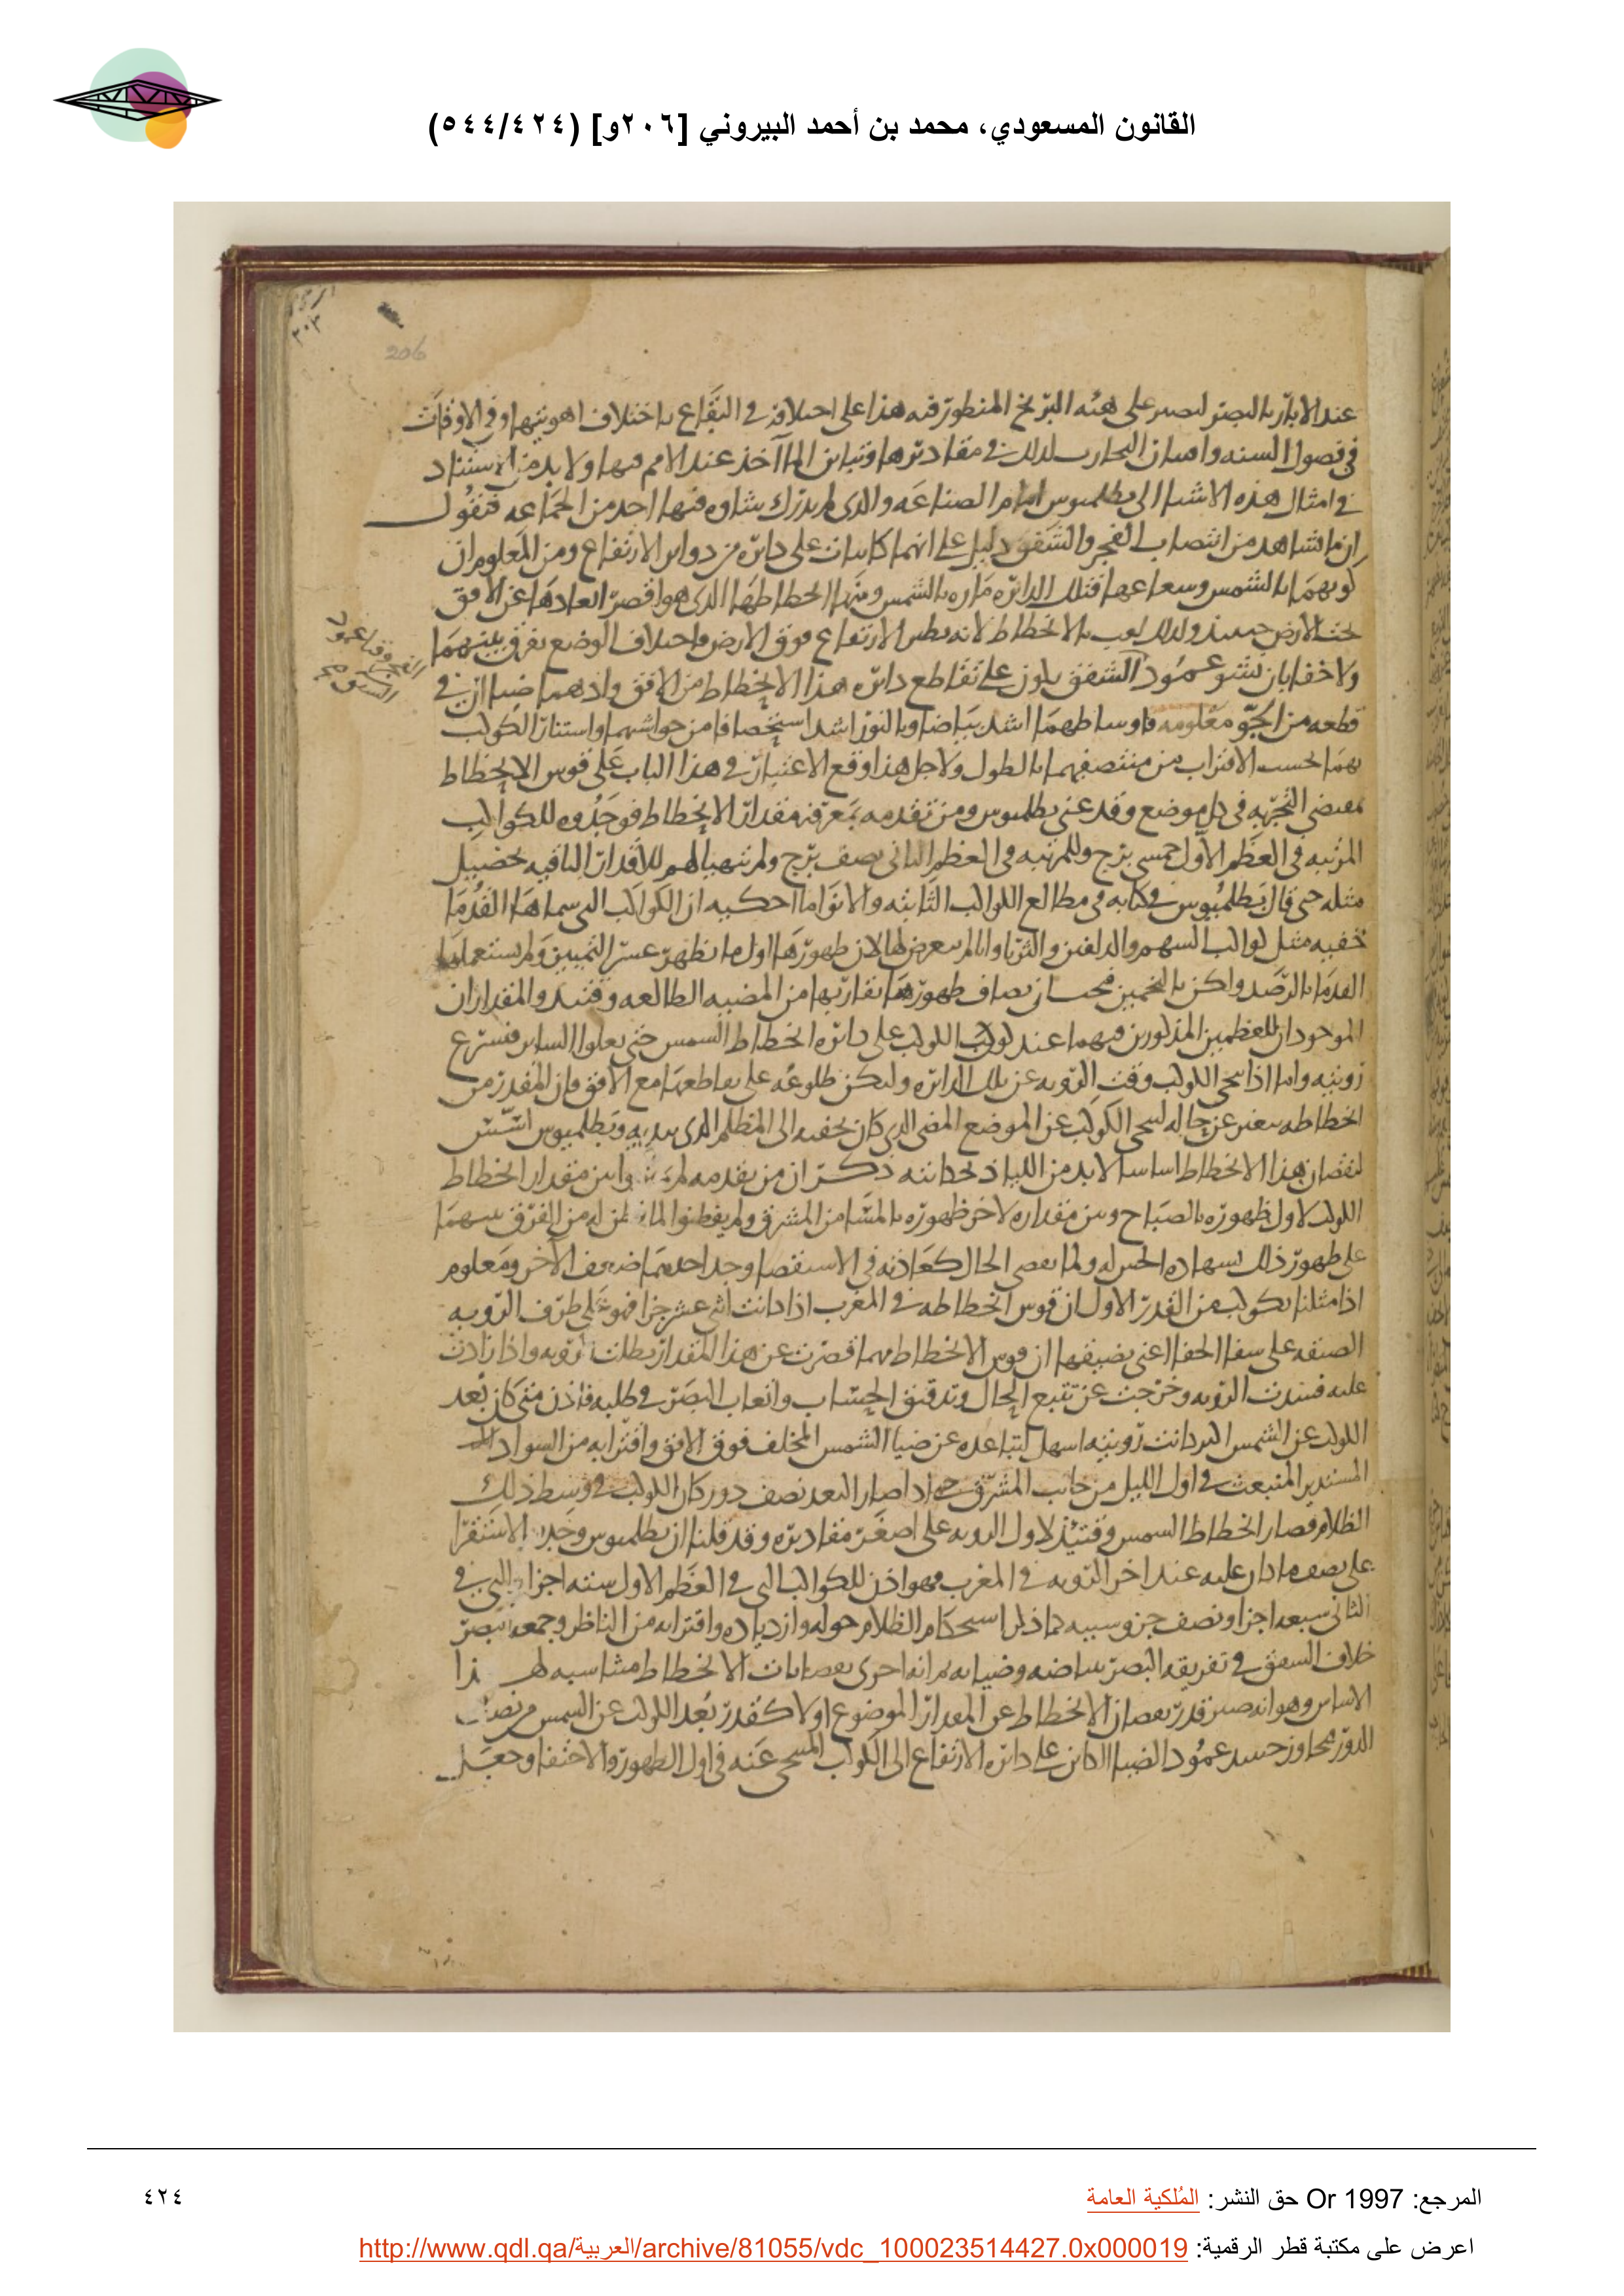 القانون المسعودي، محمد بن أحمد البيروني [٢٠٦و] (٥٤٤/٤٢٤)
٢٠٣
206
عند الابار بالبصر لصر على هذه البرىخ المنطور فيه هذا على اختلافه في البقاع باختلاف اهويتها وفي الاوقات
في فصول السنه وامتحان التجارب لذلك في مقاديرها وتباين المآخذ عند الامم فيها ولا بد من الاستناد
في امثال هذه الاشيا الى بطلميوس امام الصناعه والذى لم يدرك شاوه فيها احد من الجماعه فنقول
ان ما نشاهد من انتصاب الفجر والشفق دليل على انهما كاينان على دائره من دواير الارتفاع ومن المعلوم ان
كونهما بالشمس وشعاعها فتلك الدائره ماره بالشمس ومنها انحطاطها الذى هو اقصر ابعادها عن الافق
تحت الارض حينئذ ولذلك لقب بالانحطاط لانه نظير الارتفاع فوق الارض واختلاف الوضع يفرق بينهما
ولا خفا بان نشو عمود الشفق يكون على تقاطع دائره هذا الانحطاط من الافق واذ هما ضياان في
قطعه من الجو معلومه فاوساطهما اشد بياضا وبالنور اشد استخصافا من حواشيهما واستنار الكوكب
بهما بحسب الاقتراب من منتصفهما بالطول ولاجل هذا وقع الاعتبار في هذا الباب على قوس الانحطاط
بمقتضى التجربه في كل موضع وقد عنى بطلميوس ومن تقدمه بمعرفه مقدار الانحطاط فوجدوه للكواكب
المرتبه في العظم الاول خمسى برج وللمرتبه في العظم الثاني نصف برج ولم يتهيا لهم للاقدار الباقيه تحصيل
مثله حتى قال بطلميوس في كتابه في مطالع الكواكب الثابته والانوا ما احكيه ان الكواكب التى سماها القدما
خفيه مثل كواكب السهم والدلفين والثريا وانا لم نعرض لها لان ظهورها اول ما تظهر عسر التمييز ولم يستعملها
القدما بالرصد ولكن بالتخمين فيجب ان يضاف ظهورها بقاربها من المضيه الطالعه وقتئذ والمقداران
الموجودان للعظمين المذكورين فيهما عند كون الكوكب على دائره انحطاط الشمس حتى يعلوا الساير فتسرع
رويته واما اذا تنحى الكوكب وقت الرويه عن تلك الدائره وليكن طلوعه على تقاطعها مع الافق فان المقدر من
انحطاطه يتغير عن حاله لتنحى الكوكب عن الموضع المضى الذى كان يخفيه الى المظلم الذى يبديه وبطلميوس اسس
لنقصان هذا الانحطاط اساسا لا بد من اللياذ بجانبه ذكر ان من تقدمه لم بين مقدار انحطاط
الكوكب لاول ظهوره بالصباح وبين مقداره لاخر ظهوره بالمشا من المشرق ولم يفطنوا لما من الفرق بينهما
على ظهور ذلك بشهاده الحس له ولما تقصى الحال كعادته في الاستقصا وجد احدهما ضعف الآخر ومعلوم
اذا مثلنا بكوكب من القدر الاول ان قوس انحطاطه في المغرب اذا كانت اثنى عشر جزا فهو على طرف الرويه
الضيقه على شفا الخفا اعنى بضيقها ان قوس الانحطاط مهما قصرت عن هذا المقدار بطلت الرويه واذا زادت
عليه فشدت الرويه وخرجت عن تتبع الحال وتدقيق الحساب واتعاب البصر في طلبه فاذن متى كان بعد
الكوكب عن الشمس اكبر كانت رويته اسهل لتباعده عن ضيا الشمس المخلف فوق الافق واقترابه من السواد
المستدير المنبعث في اول الليل من جانب المشرق حتى اذا صار البعد نصف دور كان الكوكب في وسط ذلك
الظلام فصار انحطاط الشمس وقتئذ لاول الرويه على اصغر مقاديره وقد قلنا ان بطلميوس وجد بالاستقرا
على نصف ما كان عليه عند اخر الرويه في المغرب فهو اذن للكواكب التى في العظم الاول سته اجزا والتى في
الثاني سبعه اجزا ونصف جزو وسببه كما ذكر استحكام الظلام حوله وازدياده واقترابه من الناظر وجمعه البصر
خلاف الشفق في تفريقه البصر ببياضه وضيايه ثم انه اجرى نقصانات الانحطاط متناسبه لهذا
الاساس وهو انه صير قدر نقصان الانحطاط عن المقدار الموضوع اولا كقدر بعد الكوكب عن الشمس من نصف
الدور تجاوز حينئذ عمود الضيا الكاين على دائره الارتفاع الى الكوكب المتنحى عنه في اول الظهور والاختفا وجعل
المرجع: Or 1997 حق النشر: المُلكية العامة
٤٢٤
اعرض على مكتبة قطر الرقمية: http://www.qdl.qa/العربية/archive/81055/vdc_100023514427.0x000019